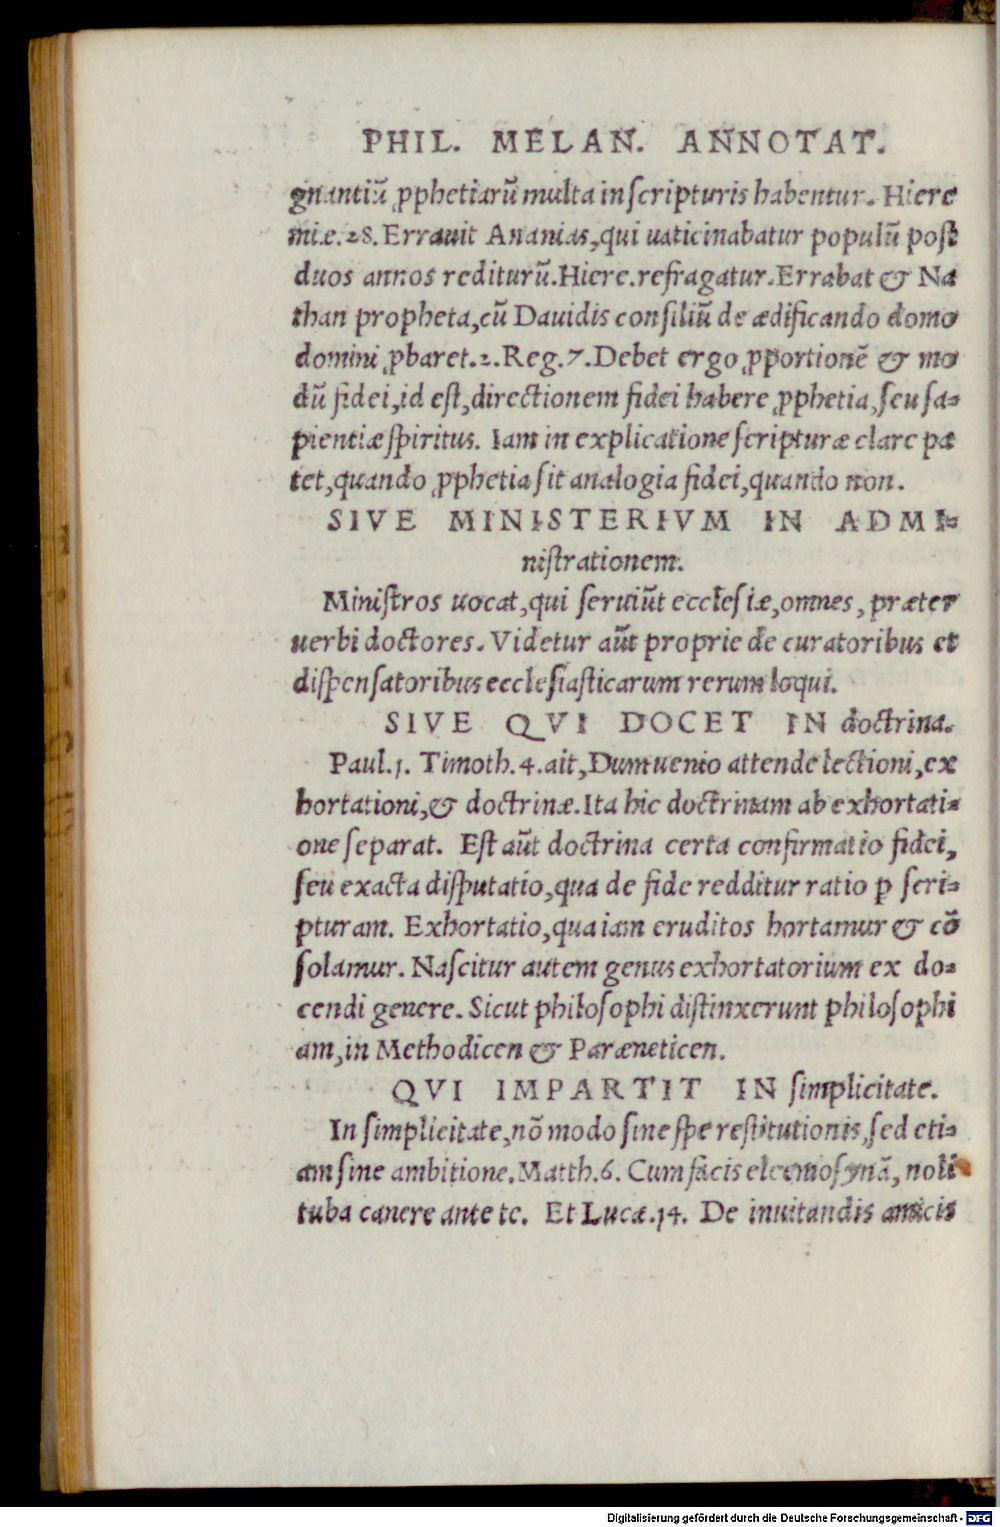 PHIL. MELAN. ANNOTAT.
gnantiũ ꝓphetiarũ multa in scripturis habentur. Hiere
miæ.28. Errauit Ananias, qui uaticinabatur populũ post
duos annos rediturũ. Hiere. refragatur. Errabat & Na
than propheta, cũ Dauidis consiliũ de ædificando domo
domini ꝓbaret.2. Reg.7. Debet ergo ꝓportionẽ & mo
dũ fidei, id est, directionem fidei habere ꝓphetia, seu sa-
pientiæ spiritus. Iam in explicatione scripturæ clare pa
tet, quando ꝓphetia sit analogia fidei, quando non.
SIVE MINISTERIVM IN ADMI-
nistrationem.
Ministros uocat, qui seruiũt ecclesiæ, omnes, præter
uerbi doctores. Videtur aũt proprie de curatoribus et
dispensatoribus ecclesiasticarum rerum loqui.
SIVE QVI DOCET IN doctrina.
Paul.1. Timoth.4. ait, Dum uenio attende lectioni, ex
hortationi, & doctrinæ. Ita hic doctrinam ab exhortati-
one separat. Est aũt doctrina certa confirmatio fidei,
seu exacta disputatio, qua de fide redditur ratio ꝑ scri-
pturam. Exhortatio, qua iam eruditos hortamur & cõ
solamur. Nascitur autem genus exhortatorium ex do-
cendi genere. Sicut philosophi distinxerunt philosophi
am, in Methodicen & Paræneticen.
QVI IMPARTIT IN simplicitate.
In simplicitate, nõ modo sine spe restitutionis, sed eti-
am sine ambitione. Matth.6. Cum facis eleemosynã, noli
tuba canere ante te. Et Lucæ.14. De inuitandis amicis
Digitalisierung gefördert durch die Deutsche Forschungsgemeinschaft - DFG